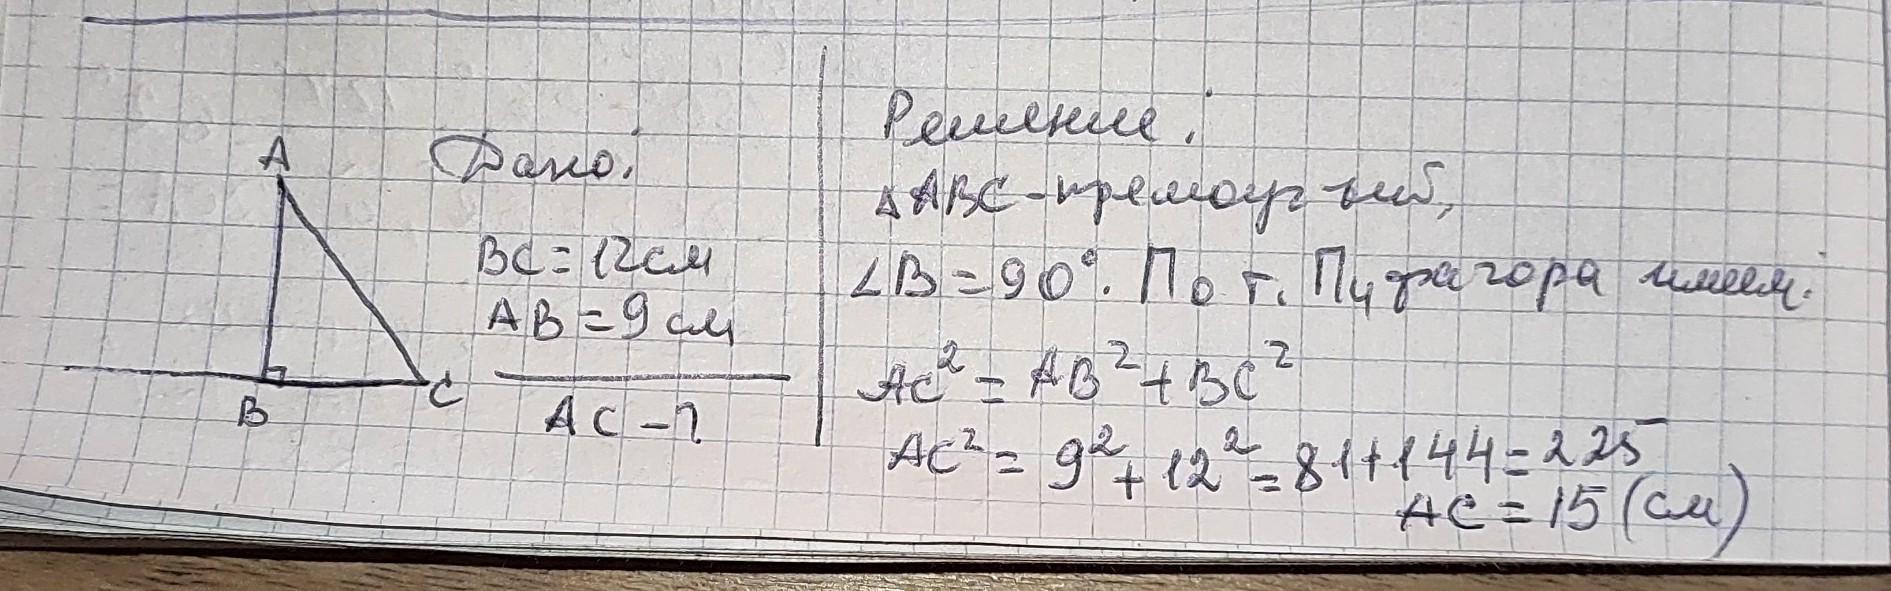 A
B
C
Дано:
BC = 12 см
AB = 9 см
AC - ?
Решение:
△ABC - премоуг-ный,
∠B = 90°. По т. Пифагора имеем:
AC² = AB² + BC²
AC² = 9² + 12² = 81 + 144 = 225
AC = 15 (см)